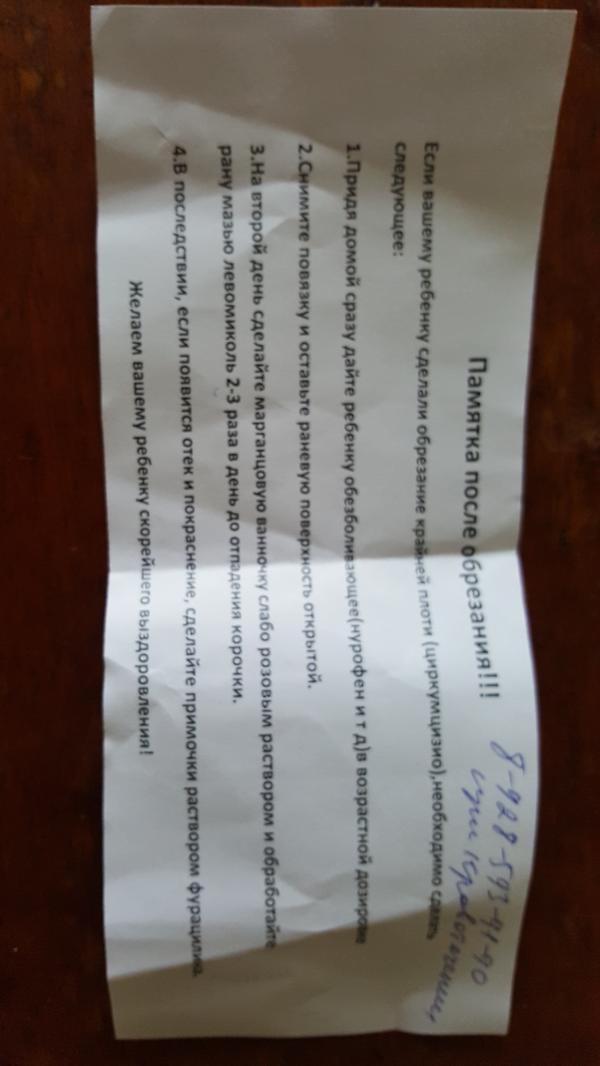 Памятка после обрезания!!!
8-928-593-91-90
при кровотечении
Если вашему ребенку сделали обрезание крайней плоти (циркумцизио),необходимо сделать
следующее:
1.Придя домой сразу дайте ребенку обезболивающее(нурофен и т д)в возрастной дозировке
2.Снимите повязку и оставьте раневую поверхность открытой.
3.На второй день сделайте марганцовую ванночку слабо розовым раствором и обработайте
рану мазью левомиколь 2-3 раза в день до отпадения корочки.
4.В последствии, если появится отек и покраснение, сделайте примочки раствором фурацилина.
Желаем вашему ребенку скорейшего выздоровления!